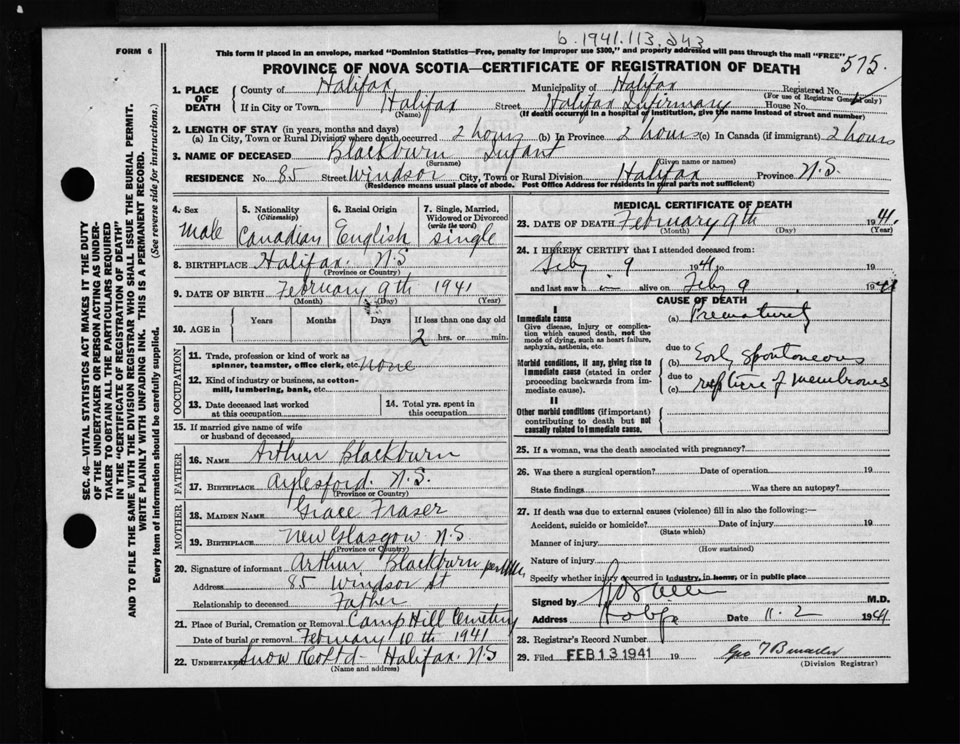 b. 1941.113.243
FORM 6
This form if placed in an envelope, marked "Dominion Statistics—Free, penalty for improper use $300," and properly addressed will pass through the mail "FREE"
575.
PROVINCE OF NOVA SCOTIA—CERTIFICATE OF REGISTRATION OF DEATH
1. PLACE OF DEATH County of Halifax Municipality of Halifax Registered No.
(For use of Registrar General only)
If in City or Town Halifax Street Halifax Infirmary House No.
(Name) (If death occurred in a hospital or institution, give the name instead of street and number)
2. LENGTH OF STAY (in years, months and days)
(a) In City, Town or Rural Division where death occurred 2 hours (b) In Province 2 hours (c) In Canada (if immigrant) 2 hours
3. NAME OF DECEASED Blackburn Infant
(Surname) (Given name or names)
RESIDENCE No. 85 Street Windsor City, Town or Rural Division Halifax Province N.S.
(Residence means usual place of abode. Post Office Address for residents in rural parts not sufficient)
4. Sex Male
5. Nationality (Citizenship) Canadian
6. Racial Origin English
7. Single, Married, Widowed or Divorced (write the word) Single
8. BIRTHPLACE Halifax. N.S
(Province or Country)
9. DATE OF BIRTH February 9th 1941
(Month) (Day) (Year)
10. AGE in Years Months Days If less than one day old
2 hrs. or min.
OCCUPATION
11. Trade, profession or kind of work as spinner, teamster, office clerk, etc. None
12. Kind of industry or business, as cotton-mill, lumbering, bank, etc.
13. Date deceased last worked at this occupation
14. Total yrs. spent in this occupation
15. If married give name of wife or husband of deceased
FATHER
16. NAME Arthur Blackburn
17. BIRTHPLACE Aylesford. N.S.
(Province or Country)
MOTHER
18. MAIDEN NAME Grace Fraser
19. BIRTHPLACE New Glasgow N.S
(Province or Country)
20. Signature of informant Arthur Blackburn per
Address 85 Windsor St
Relationship to deceased Father
21. Place of Burial, Cremation or Removal Camp Hill Cemetery
Date of burial or removal February 10th 1941
22. UNDERTAKER Snow Co Ltd - Halifax. N.S
(Name and address)
MEDICAL CERTIFICATE OF DEATH
23. DATE OF DEATH February 9th 1941.
(Month) (Day) (Year)
24. I HEREBY CERTIFY that I attended deceased from:
Feby 9 1941 to 19
and last saw h im alive on Feby 9 1941
CAUSE OF DEATH
I
Immediate cause (a) Prematurity
Give disease, injury or complication which caused death, not the mode of dying, such as heart failure, asphyxia, asthenia, etc.
due to
Morbid conditions, if any, giving rise to Immediate cause (stated in order proceeding backwards from immediate cause).
(b) Early spontaneous
due to
(c) rupture of membranes
II
Other morbid conditions (if important) contributing to death but not causally related to Immediate cause.
25. If a woman, was the death associated with pregnancy?
26. Was there a surgical operation? Date of operation 19
State findings Was there an autopsy?
27. If death was due to external causes (violence) fill in also the following:—
Accident, suicide or homicide? Date of injury 19
(State which)
Manner of injury
(How sustained)
Nature of injury
Specify whether injury occurred in industry, in home, or in public place
Signed by M.D.
Address Date 11. 2 1941
28. Registrar's Record Number
29. Filed FEB 13 1941 19
(Division Registrar)
SEC. 46—VITAL STATISTICS ACT MAKES IT THE DUTY
OF THE UNDERTAKER OR PERSON ACTING AS UNDER-
TAKER TO OBTAIN ALL THE PARTICULARS REQUIRED
IN THE "CERTIFICATE OF REGISTRATION OF DEATH"
AND TO FILE THE SAME WITH THE DIVISION REGISTRAR WHO SHALL ISSUE THE BURIAL PERMIT.
WRITE PLAINLY WITH UNFADING INK. THIS IS A PERMANENT RECORD.
Every item of Information should be carefully supplied. (See reverse side for instructions.)